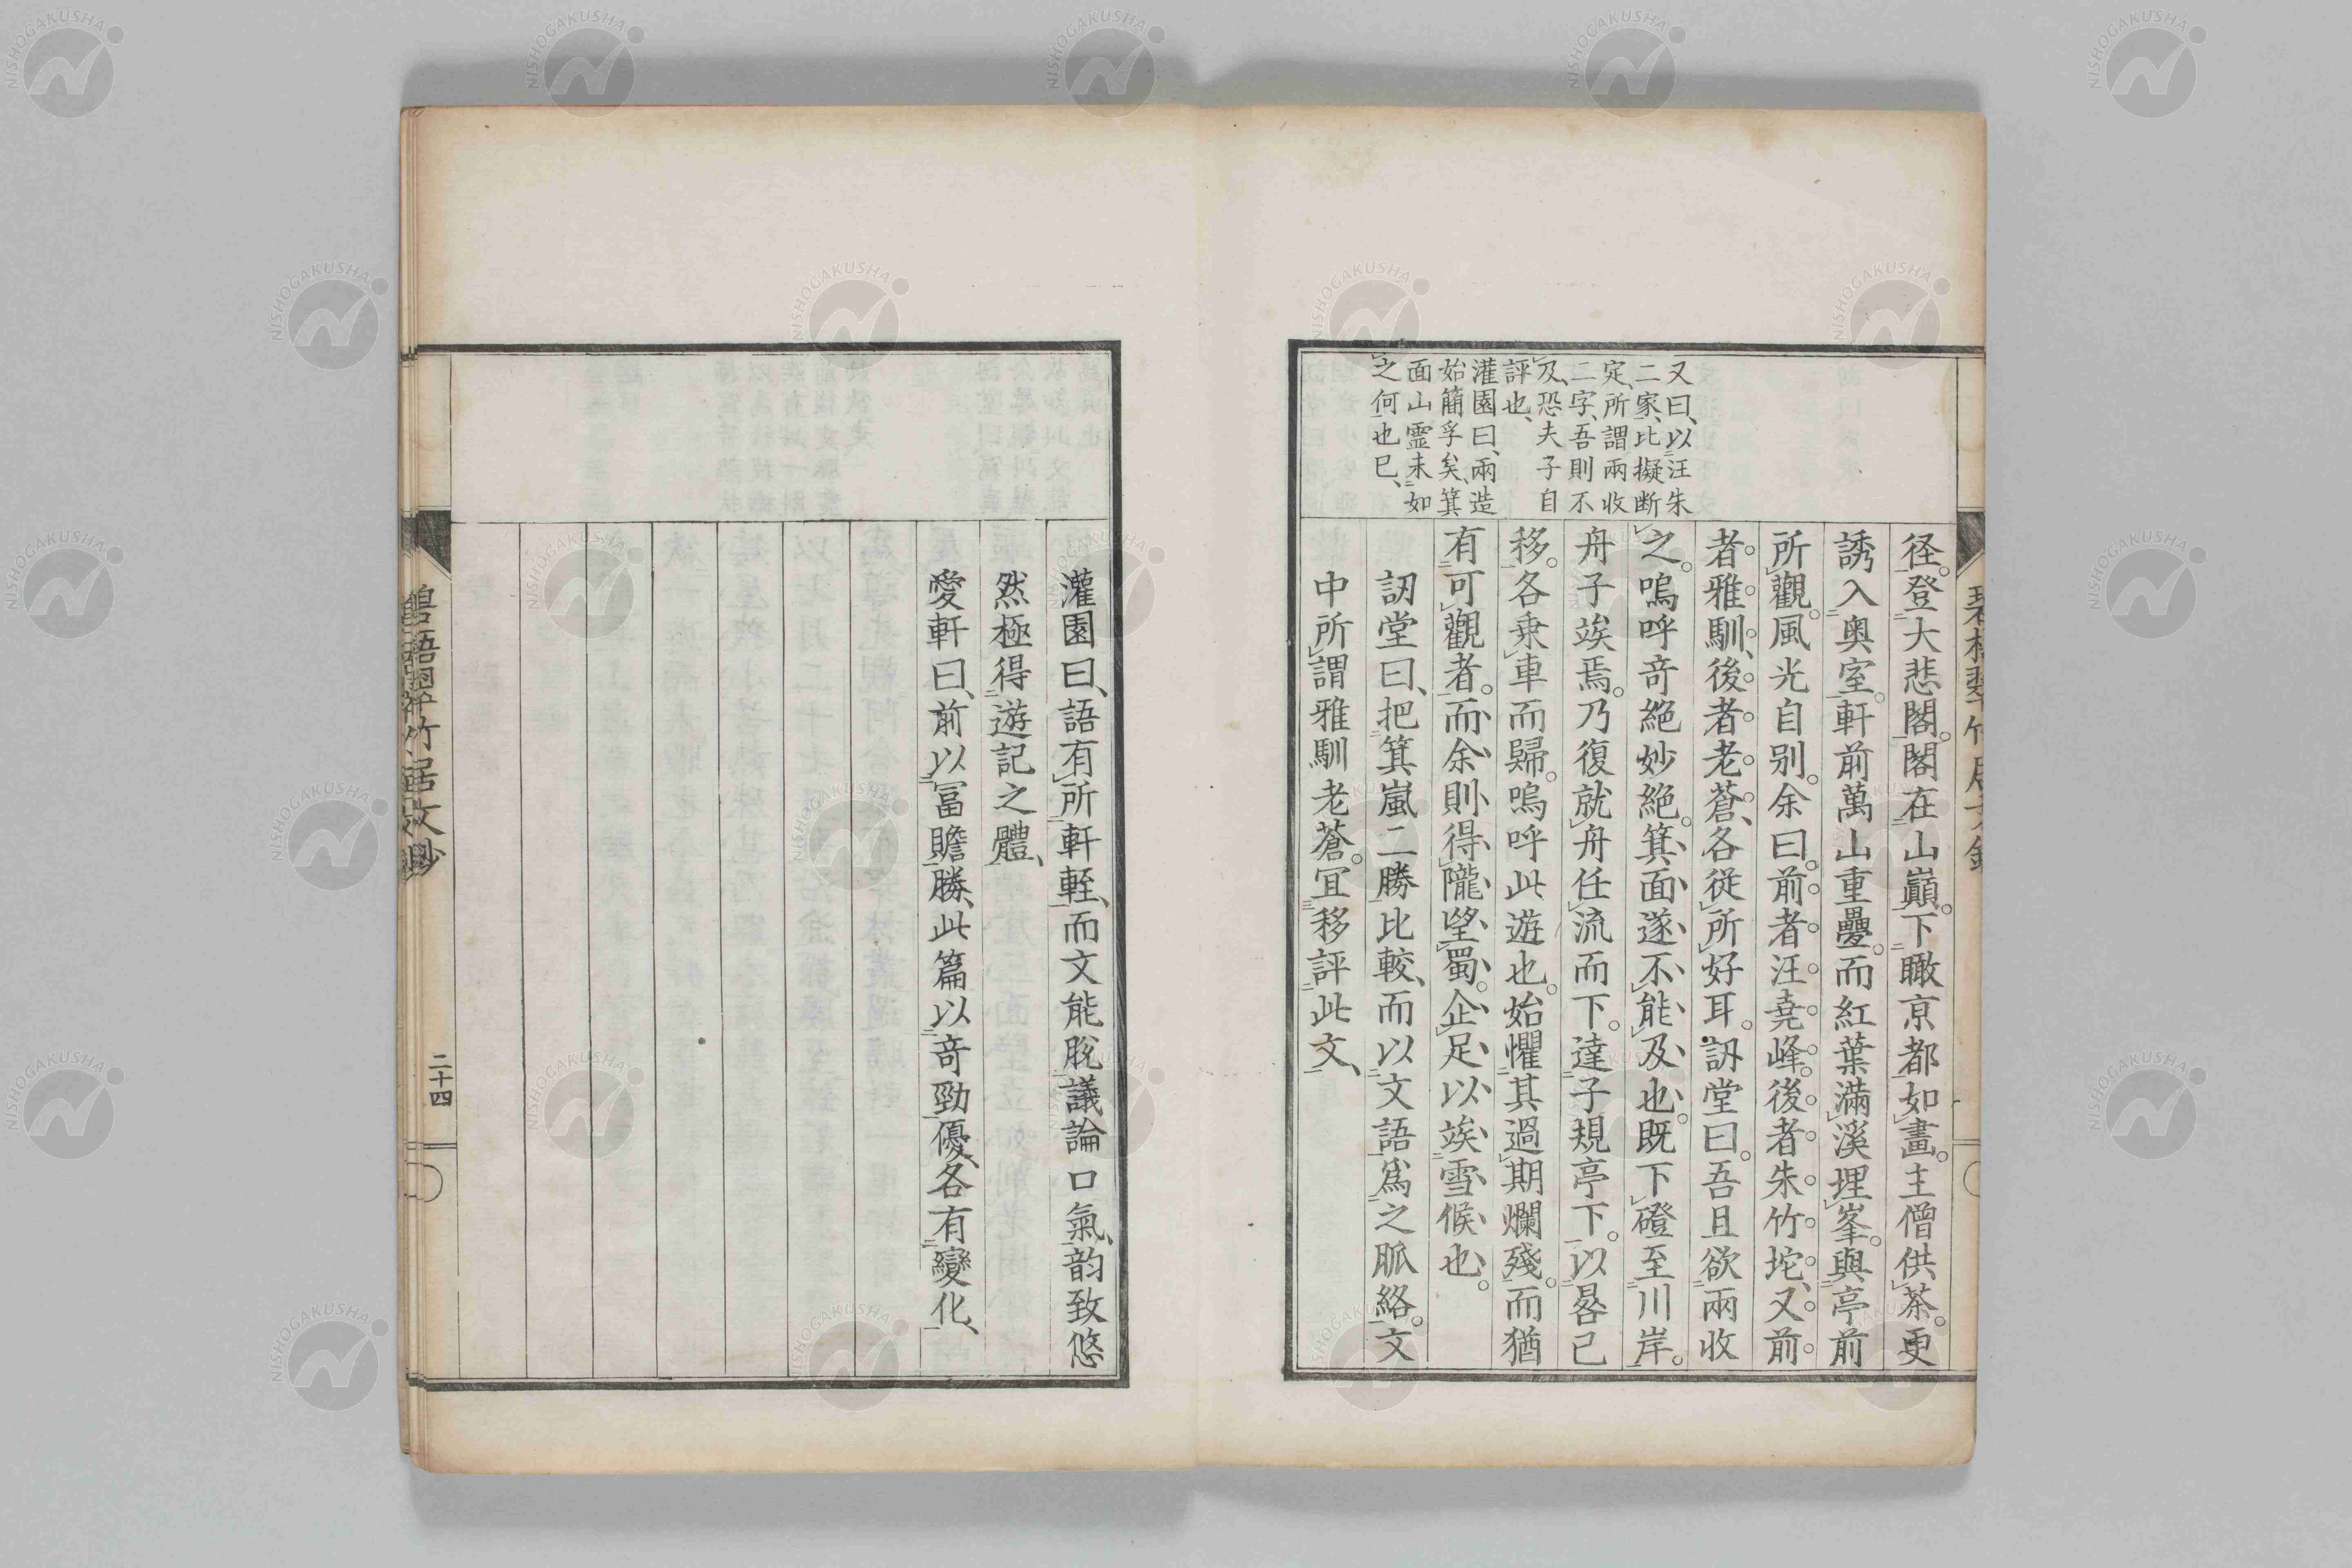 又曰、以汪朱
二家、比擬断
定、所謂兩收
二字、吾則不
及、恐夫子自
評也、
灌園曰、兩造
始簡孚矣、箕
面山靈未如
之何也已、
径。登大悲閣。閣在山巓。下瞰京都如畫。主僧供茶。更
誘入奥室。軒前萬山重疊。而紅葉滿溪埋峯。與亭前
所觀。風光自别。余曰。前者汪堯峰。後者朱竹坨、又前
者雅馴、後者老蒼、各従所好耳。訒堂曰。吾且欲兩收
之。嗚呼竒絶妙絶。箕面遂不能及也。既下磴至川岸。
舟子竢焉。乃復就舟任流而下。達子規亭下。以晷已
移。各乗車而歸。嗚呼此遊也。始懼其過期爛殘。而猶
有可觀者。而余則得隴望蜀。企足以竢雪候也。
訒堂曰、把箕嵐二勝比較、而以文語爲之脈絡。文
中所謂雅馴老蒼。冝移評此文、
灌園曰、語有所軒輊、而文能脱議論口氣、韵致悠
然極得遊記之體、
愛軒曰、前以冨贍勝、此篇以竒勁優、各有變化、
碧梧翠竹居文鈔
二十四